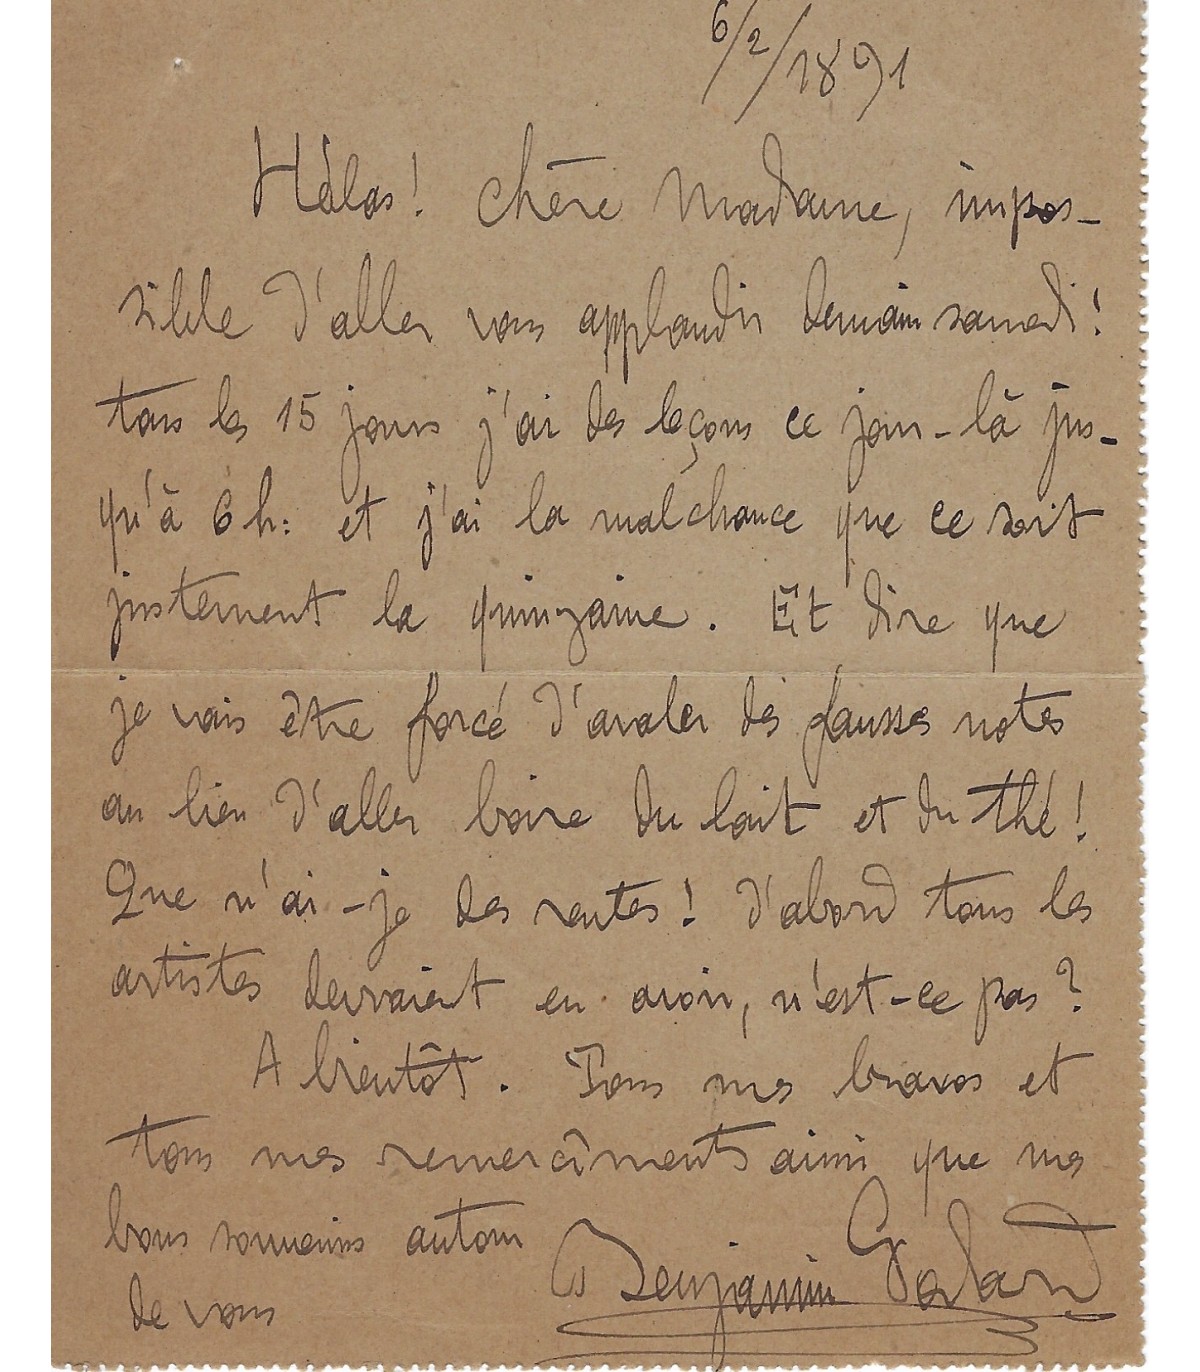 6/2/1891
Hélas! chère Madame, impos-
sible d'aller vous applaudir demain samedi!
tous les 15 jours j'ai des leçons ce jour-là jus-
qu'à 6 h: et j'ai la malchance que ce soit
justement la quinzaine. Et dire que
je vais être forcé d'avaler des fausses notes
au lieu d'aller boire du lait et du thé!
Que n'ai-je des rentes! D'abord tous les
artistes devraient en avoir, n'est-ce pas?
A bientôt. Tous mes bravos et
tous mes remercîments ainsi que mes
bons souvenirs autour
de vous
Benjamin Godard